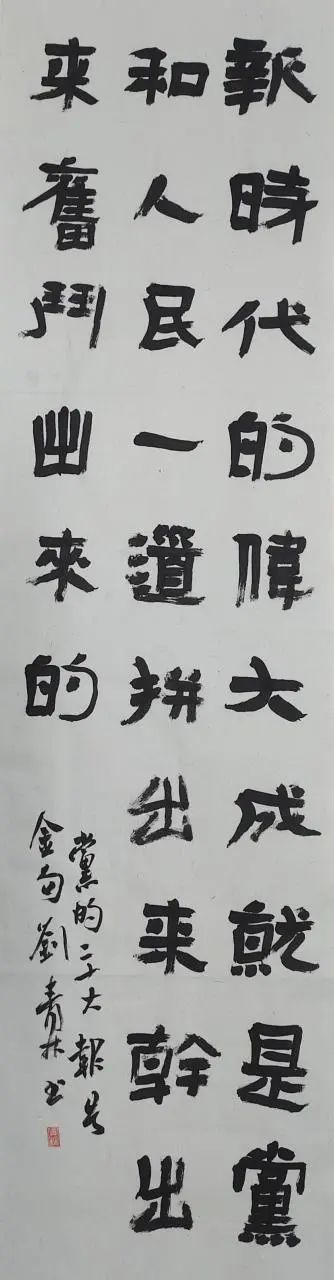 報時代的偉大成就是黨
和人民一道拼出来幹出
来奮鬥出來的
黨的二十大報告
金南劉青林书